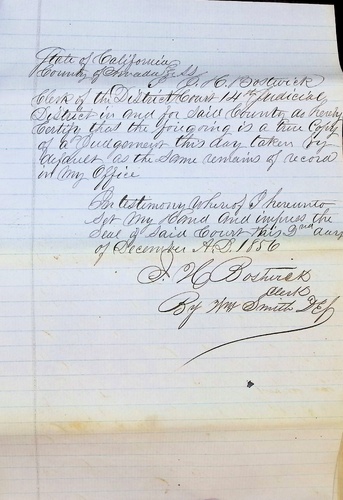 State of California
County of Nevada } SS
I J. H. Bostwick
Clerk of the District Court 14th Judicial
District in and for Said County do hereby
Certify that the foregoing is a true Copy
of a Judgement this day taken by
default as the Same remains of record
in my Office
In testimony Whereof I hereunto
Set my Hand and impress the
Seal of Said Court this 2nd day
of December A.D. 1856
J. H. Bostwick
Clerk
By Wm Smith Dep